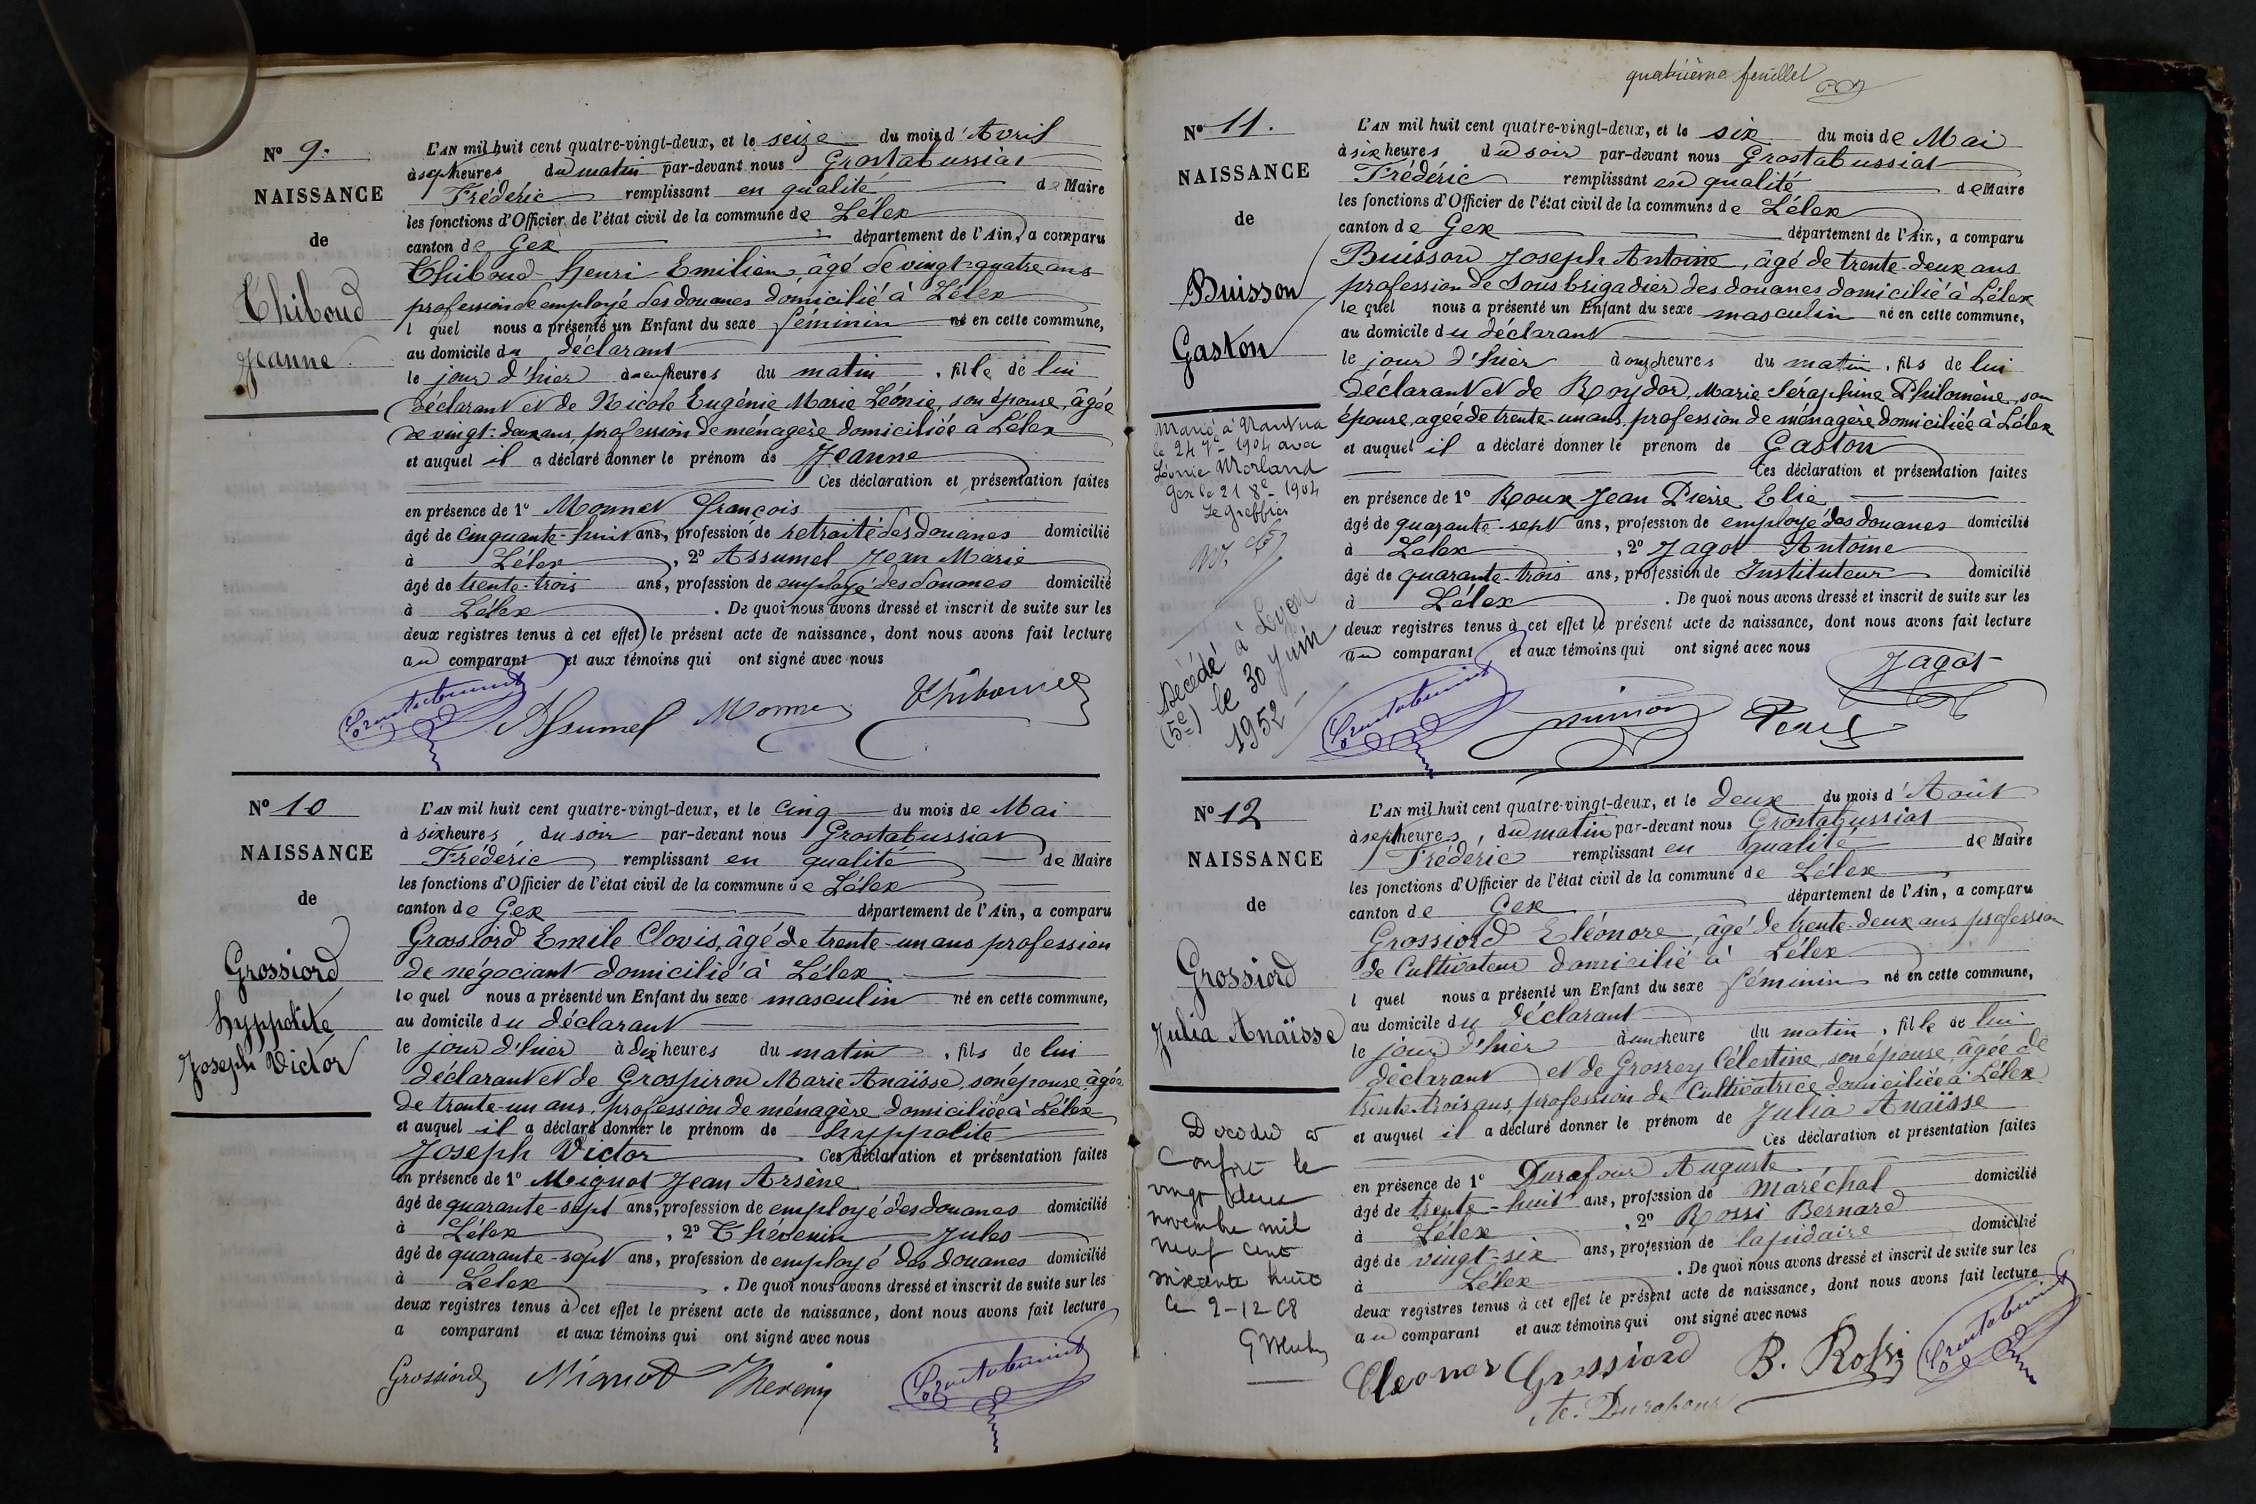 Nº 9.
NAISSANCE
de
Thiboud
Jeanne
L'AN mil huit cent quatre-vingt-deux, et le seize du mois d'Avril
à sept heures du matin par-devant nous Grostabussiat
Frédéric remplissant en qualité de Maire
les fonctions d'Officier de l'état civil de la commune de Lélex
canton de Gex département de l'Ain, a comparu
Thiboud Henri Emilien, âgé de vingt-quatre ans
profession de employé des douanes domicilié à Lélex
l quel nous a présenté un Enfant du sexe féminin né en cette commune,
au domicile du déclarant
le jour d'hier à neuf heures du matin, fille de lui
déclarant et de Nicole Eugénie Marie Léonie, son épouse, âgée
de vingt-deux ans, profession de ménagère domiciliée à Lélex
et auquel il a déclaré donner le prénom de Jeanne
Ces déclaration et présentation faites
en présence de 1º Monnet François
âgé de cinquante-huit ans, profession de retraité des douanes domicilié
à Lélex, 2º Assumel Jean Marie
âgé de trente-trois ans, profession de employé des douanes domicilié
à Lélex. De quoi nous avons dressé et inscrit de suite sur les
deux registres tenus à cet effet le présent acte de naissance, dont nous avons fait lecture
au comparant et aux témoins qui ont signé avec nous
Grostabussiat Assumel Monnet Thiboud
Nº 10
NAISSANCE
de
Grossiord
Hyppolite
Joseph Victor
L'AN mil huit cent quatre-vingt-deux, et le cinq du mois de Mai
à six heures du soir par-devant nous Grostabussiat
Frédéric remplissant en qualité de Maire
les fonctions d'Officier de l'état civil de la commune de Lélex
canton de Gex département de l'Ain, a comparu
Grossiord Emile Clovis, âgé de trente-un ans profession
de négociant domicilié à Lélex
le quel nous a présenté un Enfant du sexe masculin né en cette commune,
au domicile du déclarant
le jour d'hier à dix heures du matin, fils de lui
déclarant et de Grospiron Marie Anaïsse, son épouse, âgée
de trente-un ans, profession de ménagère domiciliée à Lélex
et auquel il a déclaré donner le prénom de Hyppolite
Joseph Victor Ces déclaration et présentation faites
en présence de 1º Mignot Jean Arsène
âgé de quarante-sept ans, profession de employé des douanes domicilié
à Lélex, 2º Thévenin Jules
âgé de quarante-sept ans, profession de employé des douanes domicilié
à Lélex. De quoi nous avons dressé et inscrit de suite sur les
deux registres tenus à cet effet le présent acte de naissance, dont nous avons fait lecture
a comparant et aux témoins qui ont signé avec nous
Grossiord Mignot Thevenin Grostabussiat
quatrième feuillet
Nº 11.
NAISSANCE
de
Buisson
Gaston
Marié à Nantua
le 24 7e 1904 avec
Léonie Morland
Gex le 21 8e 1904
Le Greffier
Décédé à Lyon
(5e) le 30 Juin
1952
L'AN mil huit cent quatre-vingt-deux, et le six du mois de Mai
à six heures du soir par-devant nous Grostabussiat
Frédéric remplissant en qualité de Maire
les fonctions d'Officier de l'état civil de la commune de Lélex
canton de Gex département de l'Ain, a comparu
Buisson Joseph Antoine, âgé de trente-deux ans
profession de Sous brigadier des douanes domicilié à Lélex
le quel nous a présenté un Enfant du sexe masculin né en cette commune,
au domicile du déclarant
le jour d'hier à onze heures du matin, fils de lui
déclarant et de Roydor, Marie Séraphine Philomène, son
épouse, agée de trente-un ans, profession de ménagère domiciliée à Lélex
et auquel il a déclaré donner le prenom de Gaston
Ces déclaration et présentation faites
en présence de 1º Roux Jean Pierre Elie
âgé de quarante-sept ans, profession de employé des douanes domicilié
à Lelex, 2º Jagot Antoine
âgé de quarante-trois ans, profession de Instituteur domicilié
à Lélex. De quoi nous avons dressé et inscrit de suite sur les
deux registres tenus à cet effet le présent acte de naissance, dont nous avons fait lecture
au comparant et aux témoins qui ont signé avec nous
Jagot
Grostabussiat Buisson Roux
Nº 12
NAISSANCE
de
Grossiord
Julia Anaïsse
Décédée à
Confort le
vingt deux
novembre mil
neuf cent
soixante huit
Le 2-12-68
L'AN mil huit cent quatre-vingt-deux, et le deux du mois d'Août
à sept heures, du matin par-devant nous Grostabussiat
Frédéric remplissant en qualité de Maire
les fonctions d'Officier de l'état civil de la commune de Lélex
canton de Gex département de l'Ain, a comparu
Grossiord Eléonore, âgé de trente-deux ans profession
de Cultivateur domicilié à Lélex
l quel nous a présenté un Enfant du sexe féminin né en cette commune,
au domicile du déclarant
le jour d'hier à une heure du matin, fille de lui
déclarant et de Grosrey Célestine, son épouse, âgée de
trente-trois ans, profession de Cultivatrice domiciliée à Lélex
et auquel il a déclaré donner le prénom de Julia Anaïsse
Ces déclaration et présentation faites
en présence de 1º Durafour Auguste
âgé de trente-huit ans, profession de Maréchal domicilié
à Lélex, 2º Rossi Bernard
âgé de vingt-six ans, profession de lapidaire domicilié
à Lélex. De quoi nous avons dressé et inscrit de suite sur les
deux registres tenus à cet effet le présent acte de naissance, dont nous avons fait lecture
au comparant et aux témoins qui ont signé avec nous
Eleonor Grossiord B. Rossi Grostabussiat
Te. Durafour